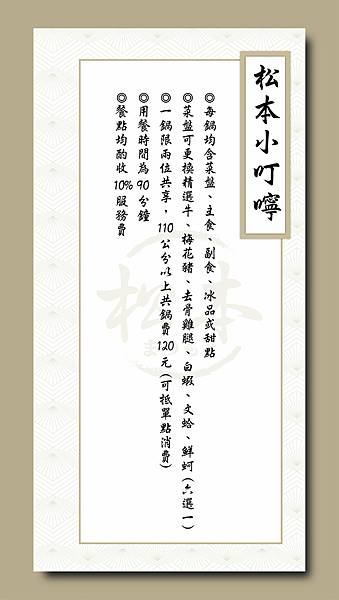 松本小叮嚀
◎每鍋均含菜盤、主食、副食、冰品或甜點
◎菜盤可更換精選牛、梅花豬、去骨雞腿、白蝦、文蛤、鮮蚵(六選一)
◎一鍋限兩位共享，110公分以上共鍋費120元(可抵單點消費)
◎用餐時間為90分鐘
◎餐點均酌收10%服務費
松本